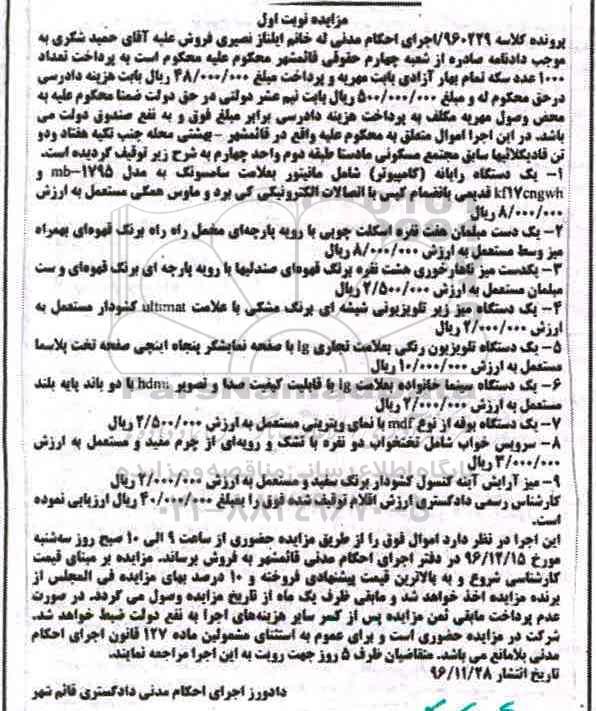 مزایده نوبت اول
پرونده کلاسه ۹۶۰۲۲۹/اجرای احکام مدنی له خانم ایلناز نصیری فروش علیه آقای حمید شکری به
موجب دادنامه صادره از شعبه چهارم حقوقی قائمشهر محکوم علیه محکوم است به پرداخت تعداد
۱۰۰۰ عدد سکه تمام بهار آزادی بابت مهریه و پرداخت مبلغ ۴۸/۰۰۰/۰۰۰ ریال بابت هزینه دادرسی
درحق محکوم له و مبلغ ۵۰۰/۰۰۰/۰۰۰ ریال بابت نیم عشر دولتی در حق دولت ضمنا محکوم علیه به
محض وصول مهریه مکلف به پرداخت هزینه دادرسی برابر مبلغ فوق و به نفع صندوق دولت می
باشد. در این اجرا اموال متعلق به محکوم علیه واقع در قائمشهر -بهشتی محله جنب تکیه هفتاد ودو
تن قادیکلائیها سابق مجتمع مسکونی مادستا طبقه دوم واحد چهارم به شرح زیر توقیف گردیده است.
۱- یک دستگاه رایانه (کامپیوتر) شامل مانیتور بعلامت سامسونگ به مدل mb-۱۷۹۵ و
kf۱۷cngwh قدیمی بانضمام کیس با اتصالات الکترونیکی کی برد و ماوس همگی مستعمل به ارزش
۸/۰۰۰/۰۰۰ ریال
۲- یک دست مبلمان هفت نفره اسکلت چوبی با رویه پارچه‌ای مخمل راه راه برنگ قهوه‌ای بهمراه
میز وسط مستعمل به ارزش ۸/۰۰۰/۰۰۰ ریال
۳- یکدست میز ناهارخوری هشت نفره برنگ قهوه‌ای صندلیها با رویه پارچه ای برنگ قهوه‌ای و ست
مبلمان مستعمل به ارزش ۲/۵۰۰/۰۰۰ ریال
۴- یک دستگاه میز زیر تلویزیونی شیشه ای برنگ مشکی با علامت ultimat کشودار مستعمل به
ارزش ۲/۰۰۰/۰۰۰ ریال
۵- یک دستگاه تلویزیون رنگی بعلامت تجاری lg با صفحه نمایشگر پنجاه اینچی صفحه تخت پلاسما
مستعمل به ارزش ۱۰/۰۰۰/۰۰۰ ریال
۶- یک دستگاه سینما خانواده بعلامت lg با قابلیت کیفیت صدا و تصویر hdmi با دو باند پایه بلند
مستعمل به ارزش ۲/۰۰۰/۰۰۰ ریال
۷- یک دستگاه بوفه از نوع mdf با نمای ویترینی مستعمل به ارزش ۲/۵۰۰/۰۰۰ ریال
۸- سرویس خواب شامل تختخواب دو نفره با تشک و رویه‌ای از چرم سفید و مستعمل به ارزش
۳/۰۰۰/۰۰۰ ریال
۹- میز آرایش آینه کنسول کشودار برنگ سفید و مستعمل به ارزش ۲/۰۰۰/۰۰۰ ریال
کارشناس رسمی دادگستری ارزش اقلام توقیف شده فوق را بمبلغ ۴۰/۰۰۰/۰۰۰ ریال ارزیابی نموده
است.
این اجرا در نظر دارد اموال فوق را از طریق مزایده حضوری از ساعت ۹ الی ۱۰ صبح روز سه‌شنبه
مورخ ۹۶/۱۲/۱۵ در دفتر اجرای احکام مدنی قائمشهر به فروش برساند. مزایده بر مبنای قیمت
کارشناسی شروع و به بالاترین قیمت پیشنهادی فروخته و ۱۰ درصد بهای مزایده فی المجلس از
برنده مزایده اخذ خواهد شد و مابقی ظرف یک ماه از تاریخ مزایده وصول می گردد. در صورت
عدم پرداخت مابقی ثمن مزایده پس از کسر سایر هزینه‌های اجرا به نفع دولت ضبط خواهد شد.
شرکت در مزایده حضوری است و برای عموم به استثنای مشمولین ماده ۱۲۷ قانون اجرای احکام
مدنی بلامانع می باشد. متقاضیان ظرف ۵ روز جهت رویت به این اجرا مراجعه نمایند.
تاریخ انتشار ۹۶/۱۱/۲۸
دادورز اجرای احکام مدنی دادگستری قائم شهر